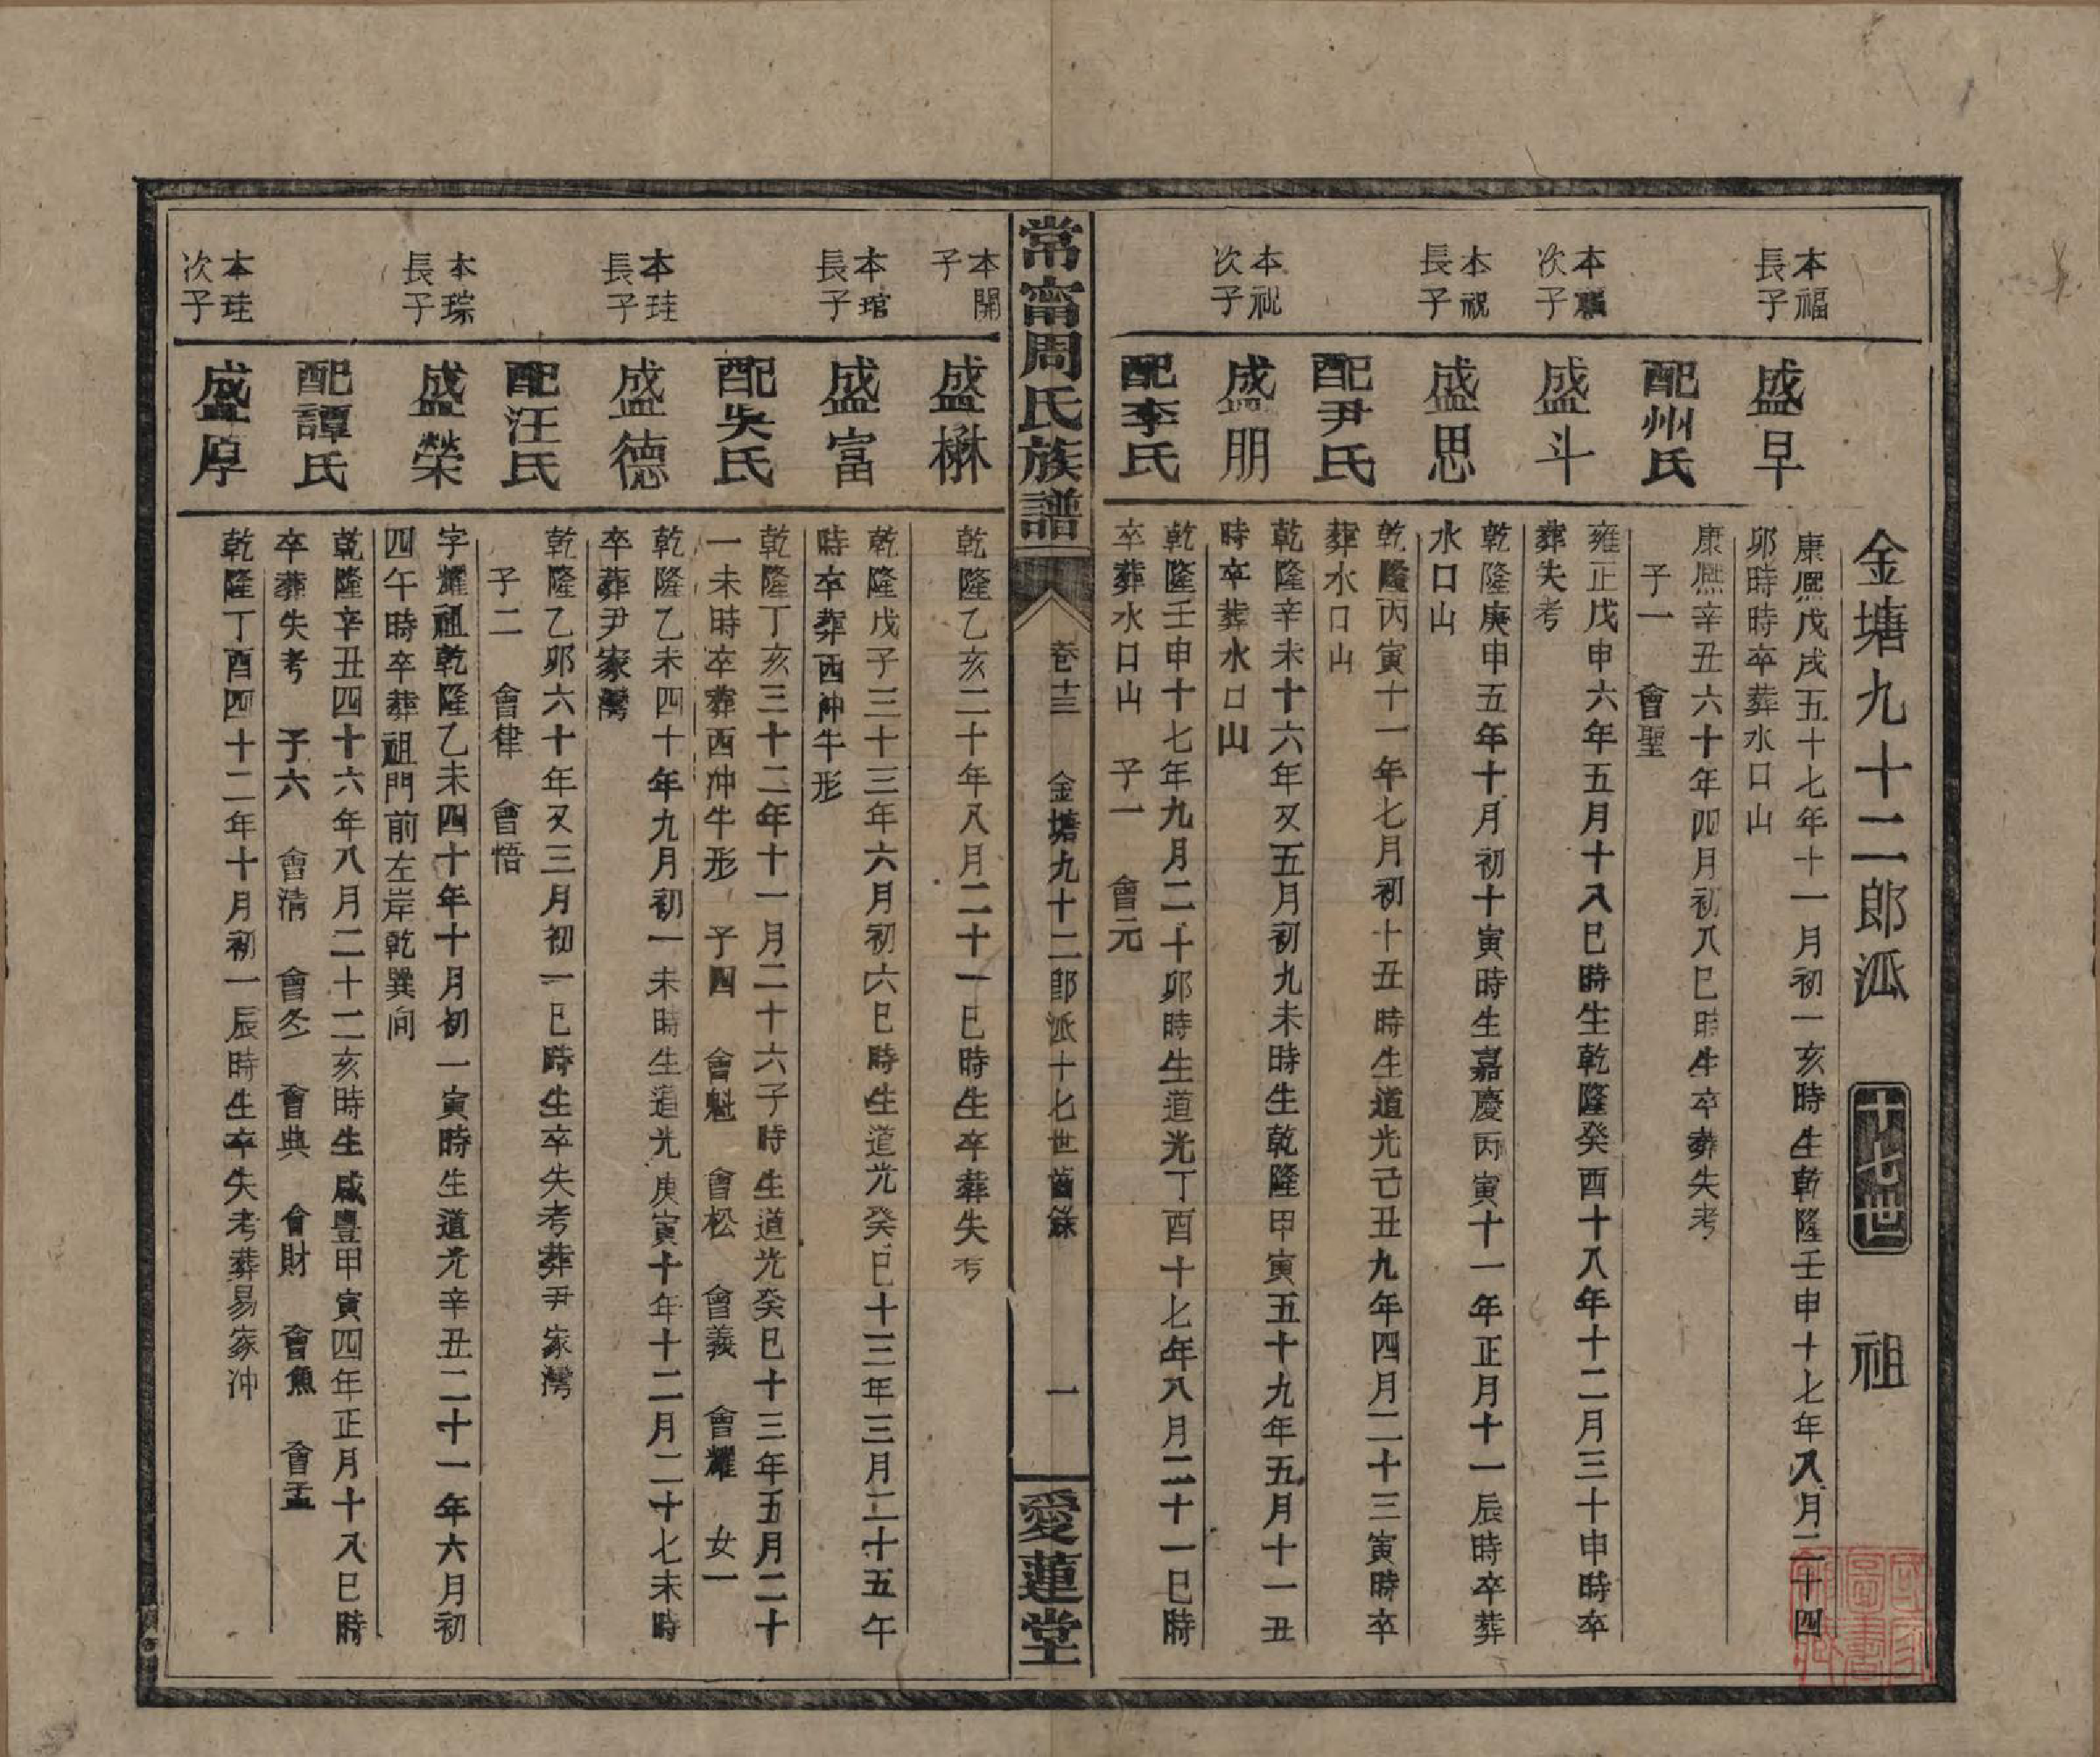 金塘九十二郎派 十七世 祖
本福長子
盛早
康熙戊戌五十七年十一月初一亥時生乾隆壬申十七年八月二十四
卯時時卒葬水口山
配州氏
康熙辛丑六十年四月初八巳時生卒葬失考
子一 會聖
本福次子
盛斗
雍正戊申六年五月十八巳時生乾隆癸酉十八年十二月三十申時卒
葬失考
本祝長子
盛思
乾隆庚申五年十月初十寅時生嘉慶丙寅十一年正月十一辰時卒葬
水口山
配尹氏
乾隆丙寅十一年七月初十丑時生道光己丑九年四月二十三寅時卒
葬水口山
本祝次子
盛朋
乾隆辛未十六年又五月初九未時生乾隆甲寅五十九年五月十一丑
時卒葬水口山
配李氏
乾隆壬申十七年九月二十卯時生道光丁酉十七年八月二十一巳時
卒葬水口山 子一 會元
常甯周氏族譜
卷十三 金塘九十二郎派十七世齒錄 一
愛蓮堂
本開子
盛楙
乾隆乙亥二十年八月二十一巳時生卒葬失考
本琯長子
盛富
乾隆戊子三十三年六月初六巳時生道光癸巳十三年三月二十五午
時卒葬西沖牛形
配吳氏
乾隆丁亥三十二年十一月二十六子時生道光癸巳十三年五月二十
一未時卒葬西沖牛形 子四 會魁 會松 會義 會耀 女一
本珪長子
盛德
乾隆乙未四十年九月初一未時生道光庚寅十年十二月二十七未時
卒葬尹家灣
配汪氏
乾隆乙卯六十年又三月初一巳時生卒失考葬尹家灣
子二 會律 會悟
本琮長子
盛榮
字耀祖乾隆乙未四十年十月初一寅時生道光辛丑二十一年六月初
四午時卒葬祖門前左岸乾巽向
配譚氏
乾隆辛丑四十六年八月二十二亥時生咸豐甲寅四年正月十八巳時
卒葬失考 子六 會清 會冬 會典 會財 會魚 會孟
本珪次子
盛厚
乾隆丁酉四十二年十月初一辰時生卒失考葬易家沖